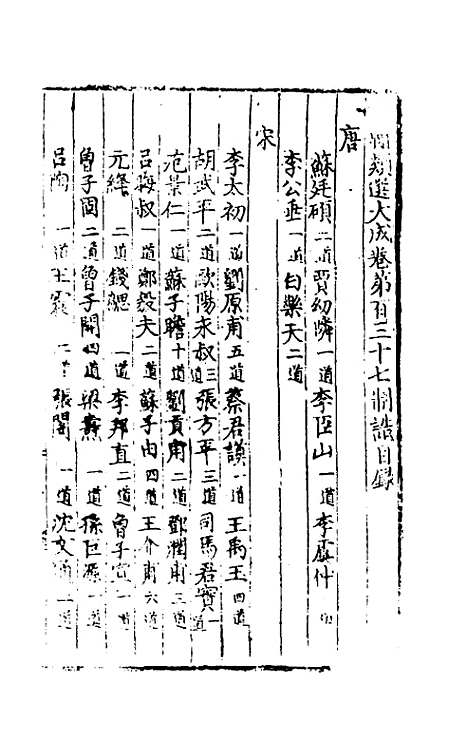 類選大成卷第百三十七制誥目録
唐
蘇廷碩二道賈幼隣一道李臣山一道李虞仲
李公垂一道白樂天二道
宋
李太初一道劉原甫五道蔡君謨一道王禹玉四道
胡武平二道歐陽永叔三道張方平三道司馬君實一道
范景仁一道蘇子瞻十道劉貢甫二道鄧潤甫三道
呂晦叔一道鄭毅夫二道蘇子由四道王介甫六道
元絳二道錢勰一道李邦直二道曾子宣一道
曾子固二道曾子開四道梁燾一道孫巨源一道
呂陶一道王震二道張閣一道沈文通一道